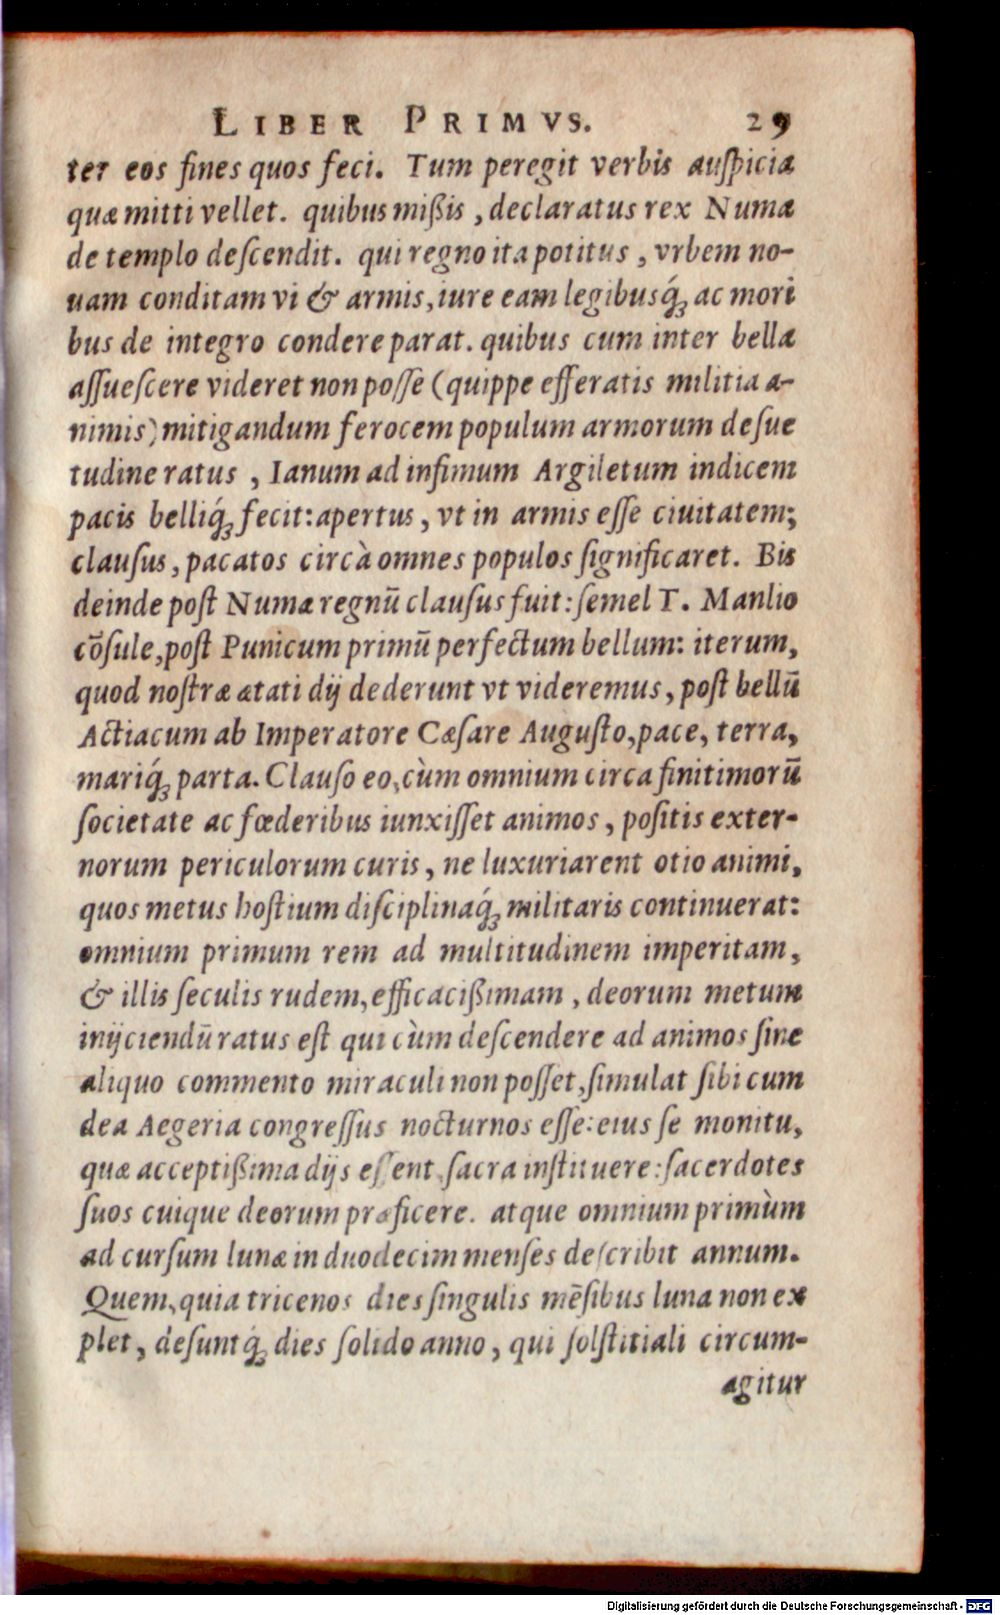 LIBER PRIMVS. 29
ter eos fines quos feci. Tum peregit verbis auſpicia
quæ mitti vellet. quibus mißis, declaratus rex Numa
de templo deſcendit. qui regno ita potitus, vrbem no-
uam conditam vi & armis, iure eam legibusq́ꝫ ac mori
bus de integro condere parat. quibus cum inter bella
aſſueſcere videret non poſſe (quippe efferatis militia a-
nimis) mitigandum ferocem populum armorum deſue
tudine ratus, Ianum ad infimum Argiletum indicem
pacis belliq́ꝫ fecit: apertus, vt in armis eſſe ciuitatem;
clauſus, pacatos circà omnes populos ſignificaret. Bis
deinde poſt Numæ regnū clauſus fuit: ſemel T. Manlio
cōſule, poſt Punicum primū perfectum bellum: iterum,
quod noſtræ ætati dij dederunt vt videremus, poſt bellū
Actiacum ab Imperatore Cæſare Auguſto, pace, terra,
mariq́ꝫ parta. Clauſo eo, cùm omnium circa finitimorū
ſocietate ac fœderibus iunxiſſet animos, poſitis exter-
norum periculorum curis, ne luxuriarent otio animi,
quos metus hoſtium diſciplinaq́ꝫ militaris continuerat:
omnium primum rem ad multitudinem imperitam,
& illis ſeculis rudem, efficacißimam, deorum metum
inijciendū ratus eſt qui cùm deſcendere ad animos ſine
aliquo commento miraculi non poſſet, ſimulat ſibi cum
dea Aegeria congreſſus nocturnos eſſe: eius ſe monitu,
quæ acceptißima dijs eſſent, ſacra inſtituere: ſacerdotes
ſuos cuique deorum præficere. atque omnium primùm
ad curſum lunæ in duodecim menſes deſcribit annum.
Quem, quia tricenos dies ſingulis mēſibus luna non ex
plet, deſuntq́ꝫ dies ſolido anno, qui ſolſtitiali circum-
agitur
Digitalisierung gefördert durch die Deutsche Forschungsgemeinschaft - DFG